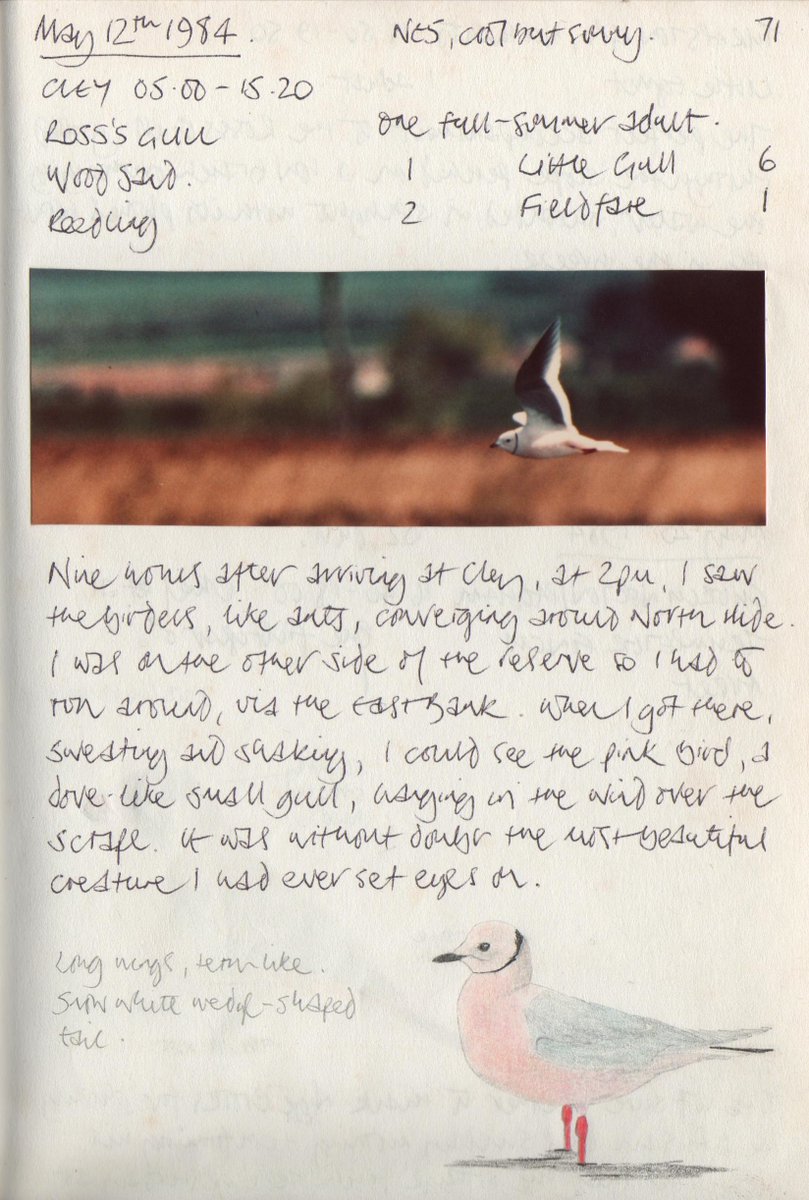 May 12th 1984. NE5, cool but sunny. 71
CLEY 05.00 - 15.20
ROSS'S GULL one full-summer adult.
Wood Sand. 1 Little Gull 6
Reedling 2 Fieldfare 1
Nine hours after arriving at Cley, at 2pm, I saw
the birders, like ants, converging around North Hide.
I was on the other side of the reserve so I had to
run around, via the East Bank. When I got there,
sweating and shaking, I could see the pink bird, a
dove-like small gull, hanging in the wind over the
scrape. It was without doubt the most beautiful
creature I had ever set eyes on.
Long wings, tern-like.
Snow white wedge-shaped
tail.